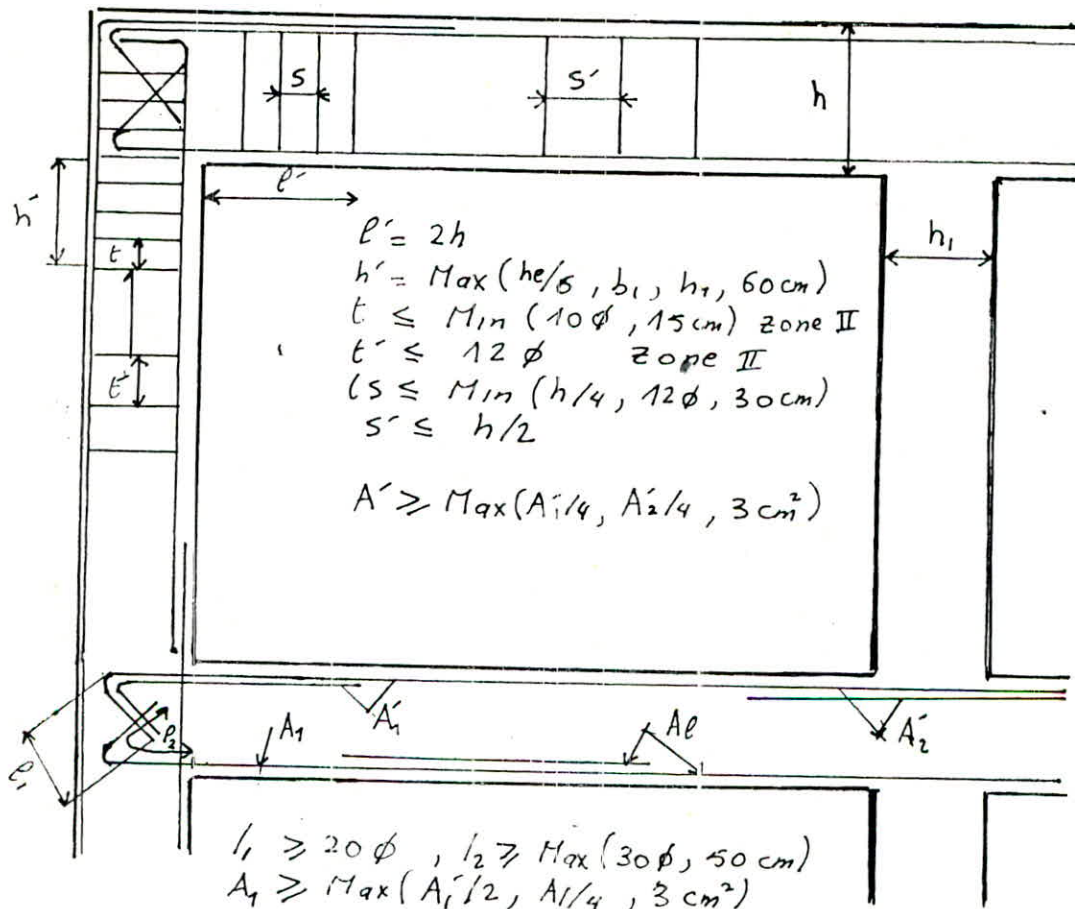 s
s'
h
h'
l'
h₁
t
t'
l' = 2h
h' = Max (he/6, b₁, h₁, 60 cm)
t ≤ Min (10ϕ, 15 cm) zone II
t' ≤ 12 ϕ zone II
(s ≤ Min (h/4, 12ϕ, 30 cm)
s' ≤ h/2
A' ⩾ Max (A'₁/4, A'₂/4, 3 cm²)
A'₁
A'₂
A₁
Aℓ
l₂
l₁
l₁ ⩾ 20 ϕ , l₂ ⩾ Max (30ϕ, 50 cm)
A₁ ⩾ Max (A'₁/2, Aℓ/4, 3 cm²)